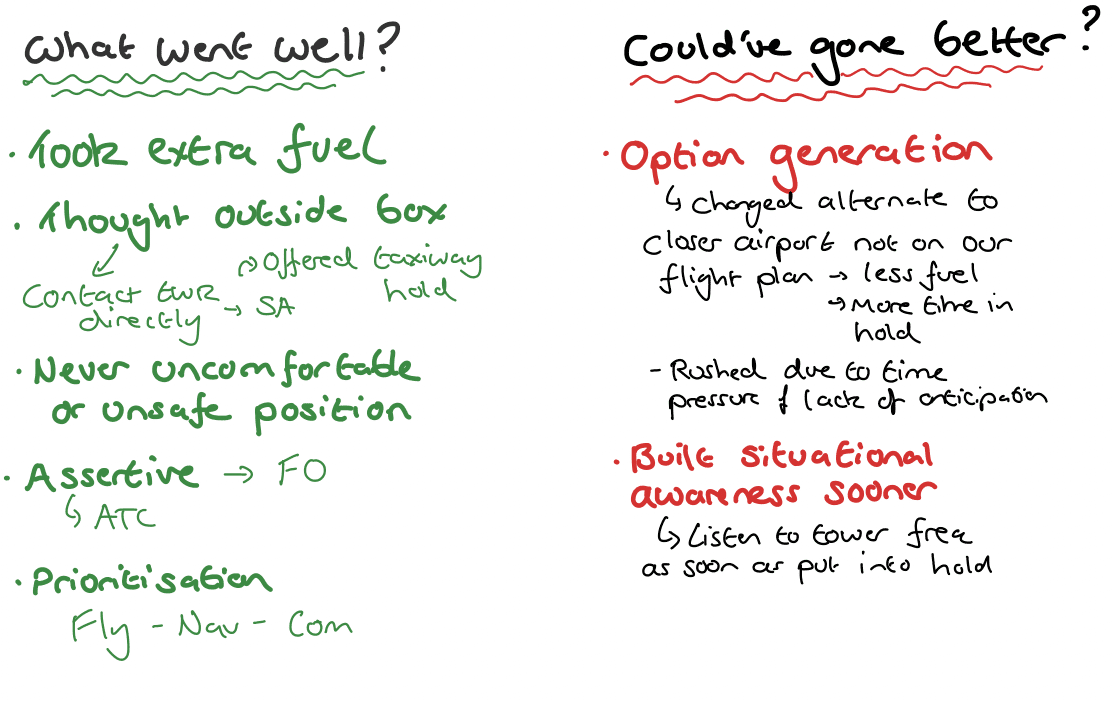 What went well?
• Took extra fuel
• Thought outside box
↙ ↱ Offered taxiway
hold
Contact TWR → SA
directly
• Never uncomfortable
or unsafe position
• Assertive → FO
↳ ATC
• Prioritisation
Fly - Nav - Com
Could've gone better?
• Option generation
↳ Changed alternate to
closer airport not on our
flight plan → less fuel
→ More time in
hold
- Rushed due to time
pressure & lack of anticipation
• Built situational
awareness sooner
↳ Listen to tower freq
as soon as put into hold